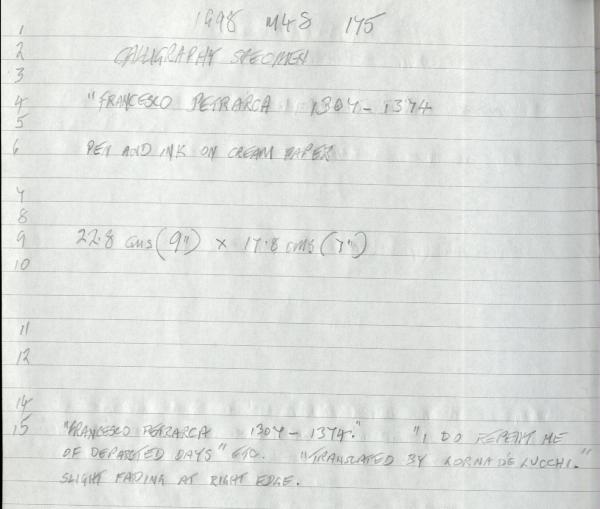 1 1998 M48 175
2 CALLIGRAPHY SPECIMEN
3
4 "FRANCESCO PETRARCA 1304 - 1374
5
6 PEN AND INK ON CREAM PAPER
7
8
9 22.8 cms (9") x 17.8 cms (7")
10
11
12
14
15 "FRANCESCO PETRARCA 1304 - 1374." "I DO REPENT ME
OF DEPARTED DAYS" ETC. "TRANSLATED BY LORNA DE LUCCHI."
SLIGHT FADING AT RIGHT EDGE.